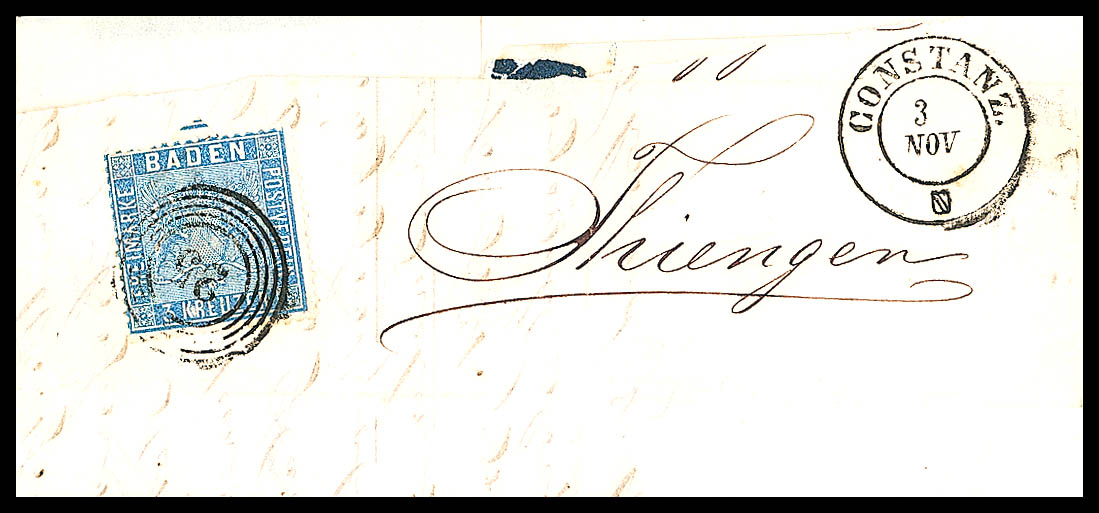 BADEN
FREIMARKE
POSTVEREIN
3 KREUZER
CONSTANZ.
3
NOV
Thiengen